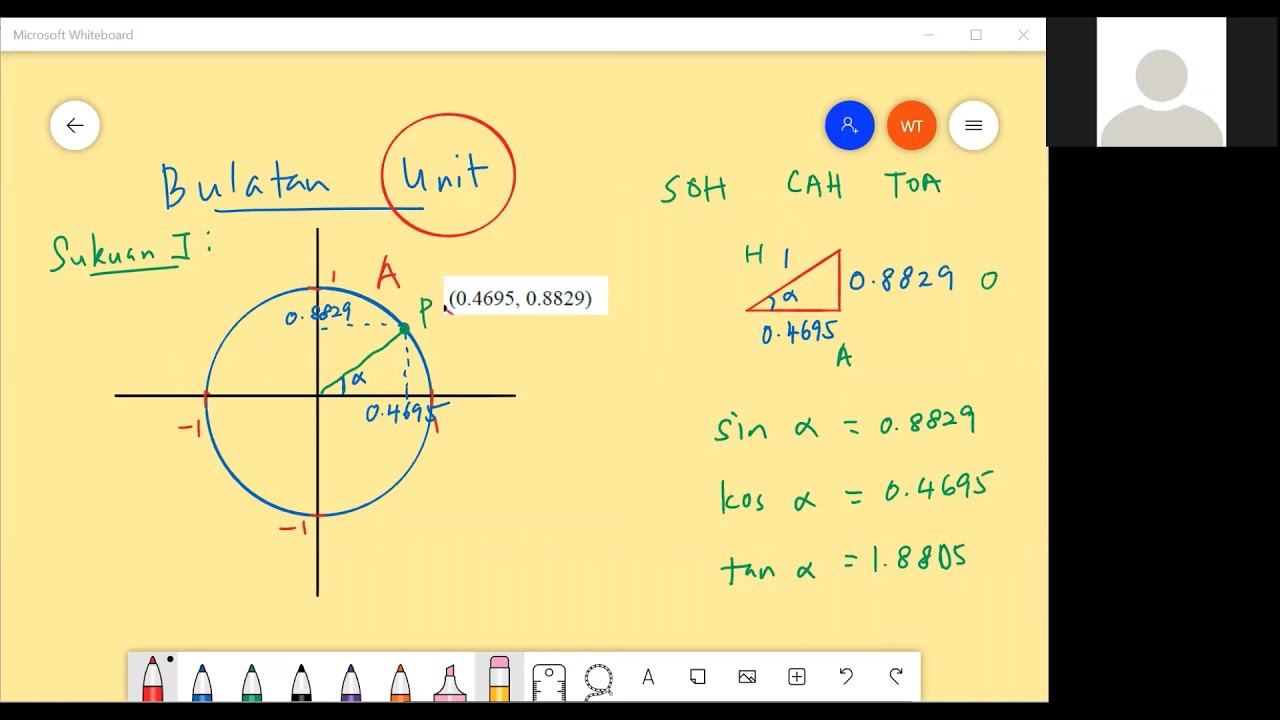 Microsoft Whiteboard
WT
Bulatan Unit
SOH CAH TOA
Sukuan I :
1
A
P
(0.4695, 0.8829)
0.8829
α
0.4695
-1
1
-1
H 1
α
0.8829 O
0.4695
A
sin α = 0.8829
kos α = 0.4695
tan α = 1.8805
A